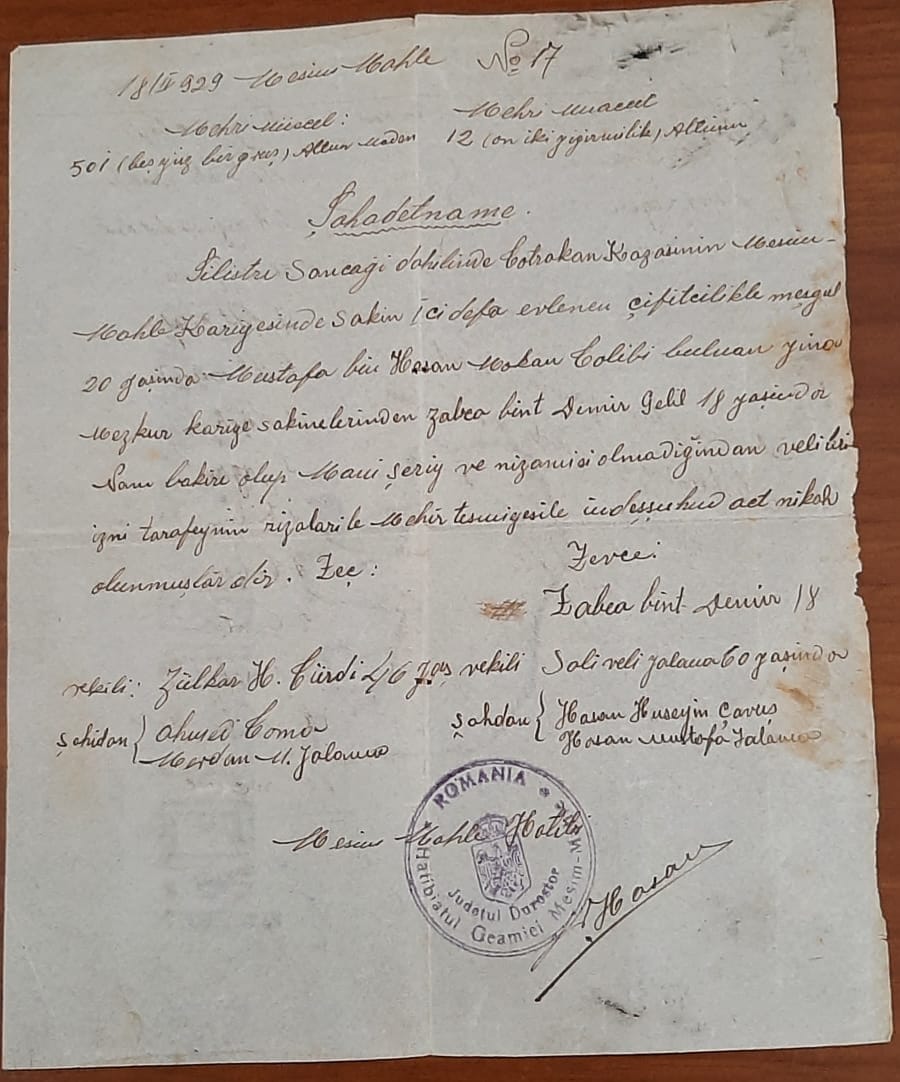 18/II 929 Mesim Mahle № 17
Mehri müecel: Mehri muaccel
501 (beş yüz bir gruş) Altun Maden 12 (on iki yigirmilik) Altunu
Şahadetname.
Silistre Sancaği dahilinde Totrakan Kazasinin Mesim-
Mahle Kariyesinde Sakin ici defa evlenen çifitcilikle meşgul
20 yaşinda Mustafa bin Hasan Mokan Colibi buluan yine
Mezkur kariye sakinelerinden Zabea bint Demir Gelil 18 yaşinda
Nam bakire olup Maui şeriy ve nizamisi olmadiğindan velileri
izni tarafeynin rizalarile Mehir tesmiyesile indeşşuhud act nikah
olunmuşlardir. Zeç: Zevce:
Zabea bint Demir 18
vekili: Zülkar H. Cürdi 46 yaş vekili Sali veli yalama 60 yaşinda
şahidan { Ahmed Coma şahdan { Hasan Huseyin çavuş
Merdan M. Jalama Hasan Mustafa Jalama
Mesim Mahle Hatibi
ROMANIA
Judeţul Durostor
Hatibiatul Geamiei Mesim-M
Hasan